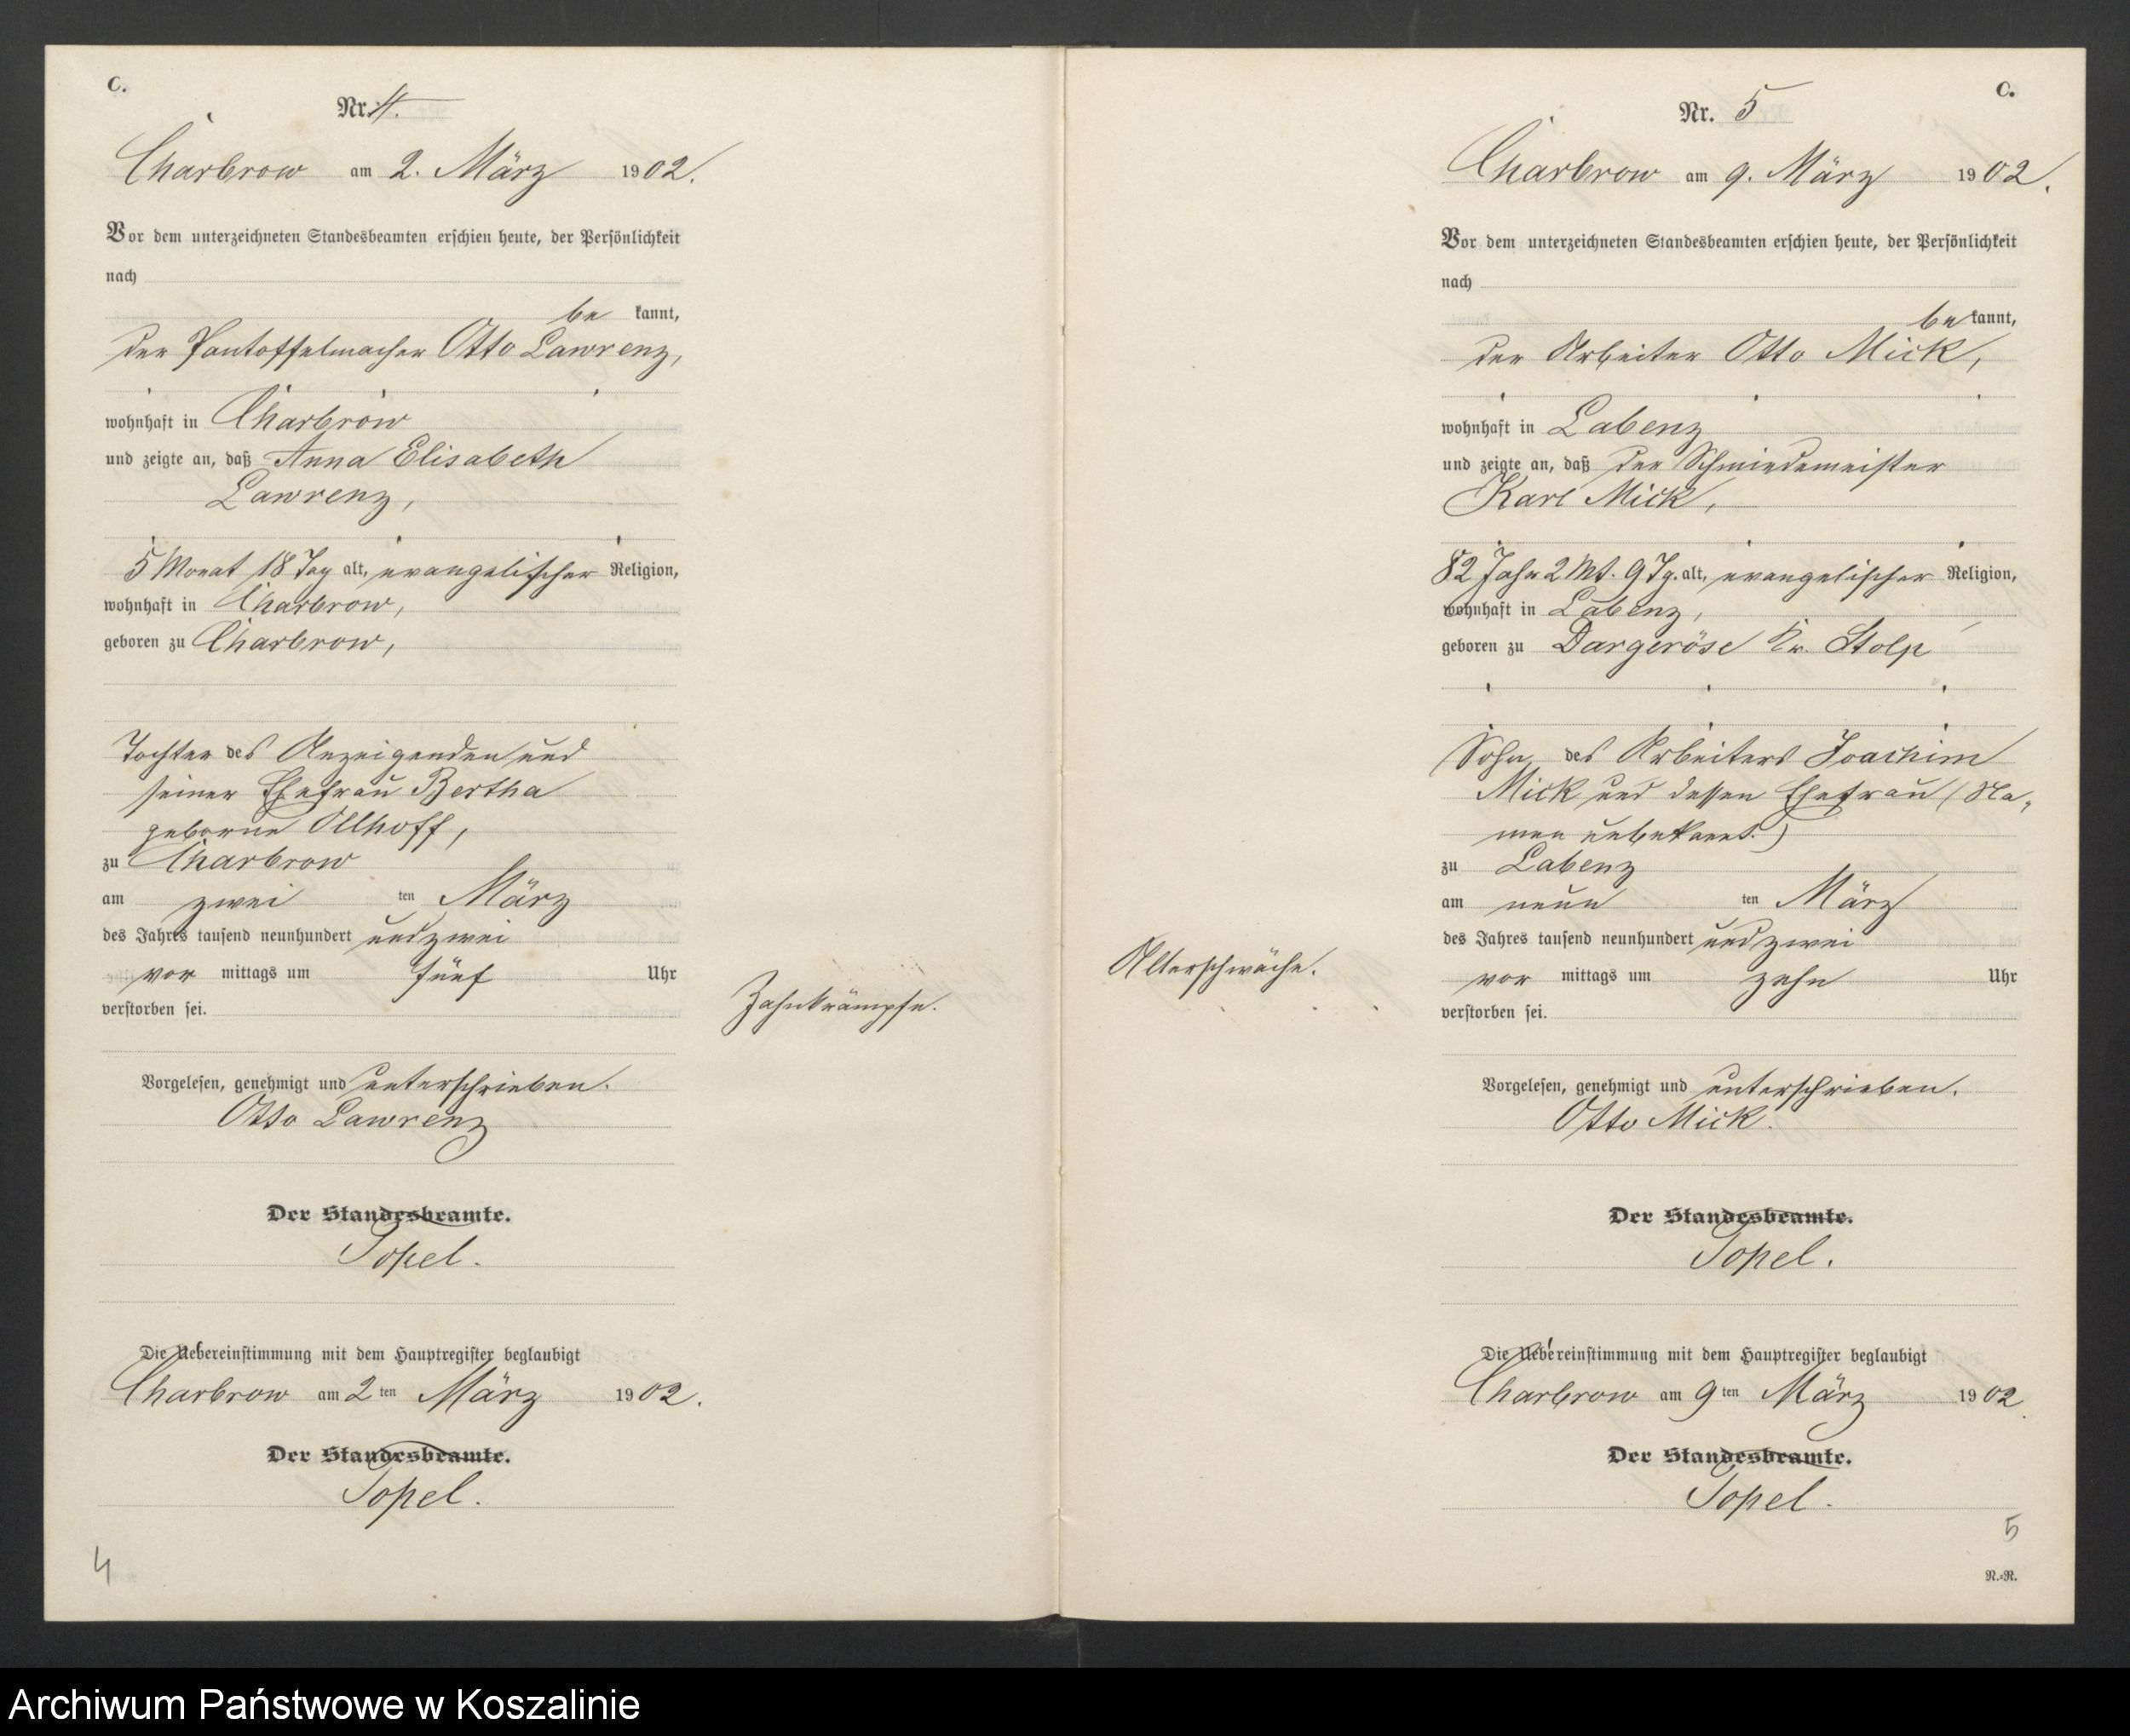 C.
Nr. 4.
Charbrow am 2. März 1902.
Vor dem unterzeichneten Standesbeamten erschien heute, der Persönlichkeit
nach
be kannt,
der Pantoffelmacher Otto Lawrenz,
wohnhaft in Charbrow
und zeigte an, daß Anna Elisabeth
Lawrenz,
5 Monat 18 Tag alt, evangelischer Religion,
wohnhaft in Charbrow,
geboren zu Charbrow,
Tochter des Anzeigenden und
seiner Ehefrau Bertha
geborne Ollhoff,
zu Charbrow
am zwei ten März
des Jahres tausend neunhundert und zwei
vor mittags um fünf Uhr
verstorben sei.
Zahnkrämpfe.
Vorgelesen, genehmigt und unterschrieben.
Otto Lawrenz
Der Standesbeamte.
Topel.
Die Uebereinstimmung mit dem Hauptregister beglaubigt
Charbrow am 2 ten März 1902.
Der Standesbeamte.
Topel.
4
C.
Nr. 5
Charbrow am 9. März 1902.
Vor dem unterzeichneten Standesbeamten erschien heute, der Persönlichkeit
nach
be kannt,
der Arbeiter Otto Mick,
wohnhaft in Labenz
und zeigte an, daß der Schmiedemeister
Karl Mick,
82 Jahr 2 Mt. 9 Tg. alt, evangelischer Religion,
wohnhaft in Labenz,
geboren zu Dargeröse Kr. Stolp
Sohn des Arbeiters Joachim
Mick und dessen Ehefrau (Na-
men unbekannt.)
zu Labenz
am neun ten März
des Jahres tausend neunhundert und zwei
vor mittags um zehn Uhr
verstorben sei.
Altersschwäche.
Vorgelesen, genehmigt und unterschrieben.
Otto Mick.
Der Standesbeamte.
Topel.
Die Uebereinstimmung mit dem Hauptregister beglaubigt
Charbrow am 9 ten März 1902
Der Standesbeamte.
Topel.
5
N.-R.
Archiwum Państwowe w Koszalinie